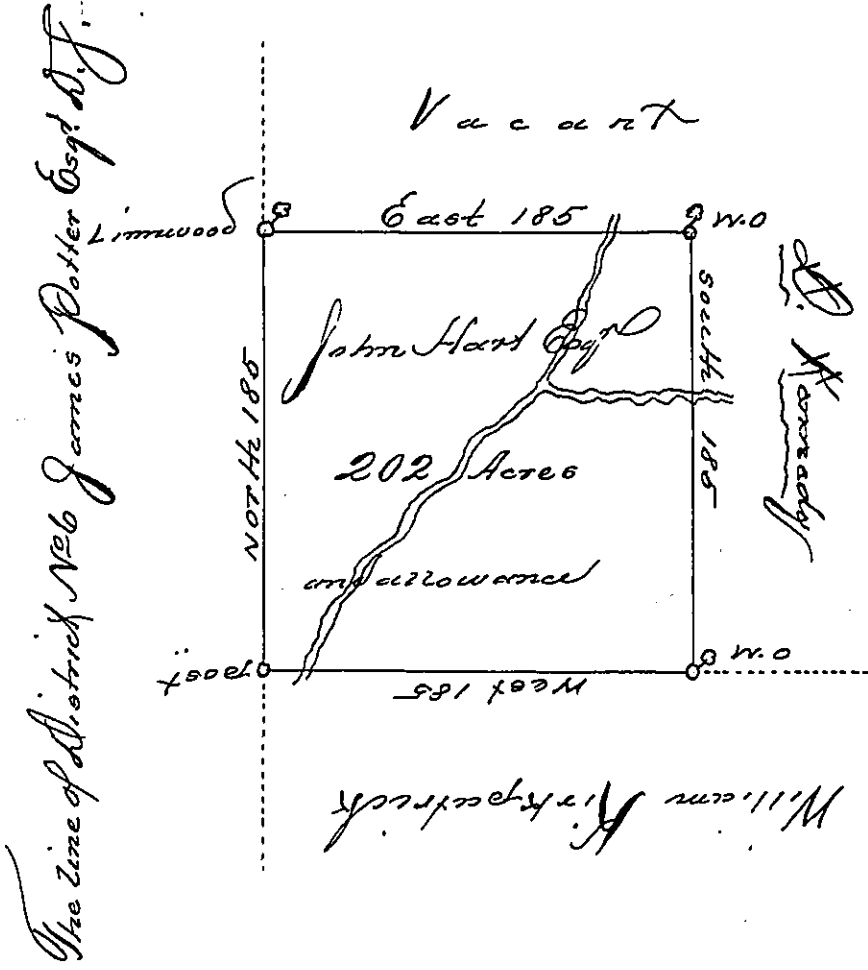 The Line of District No6 James Potter Esqr. D.S.
Vacant
Linnwood
East 185
W.O
North 185
John Hart Esqr
South 185
202 Acres
and allowance
post
West 185
W.O
William Kirkpatrick